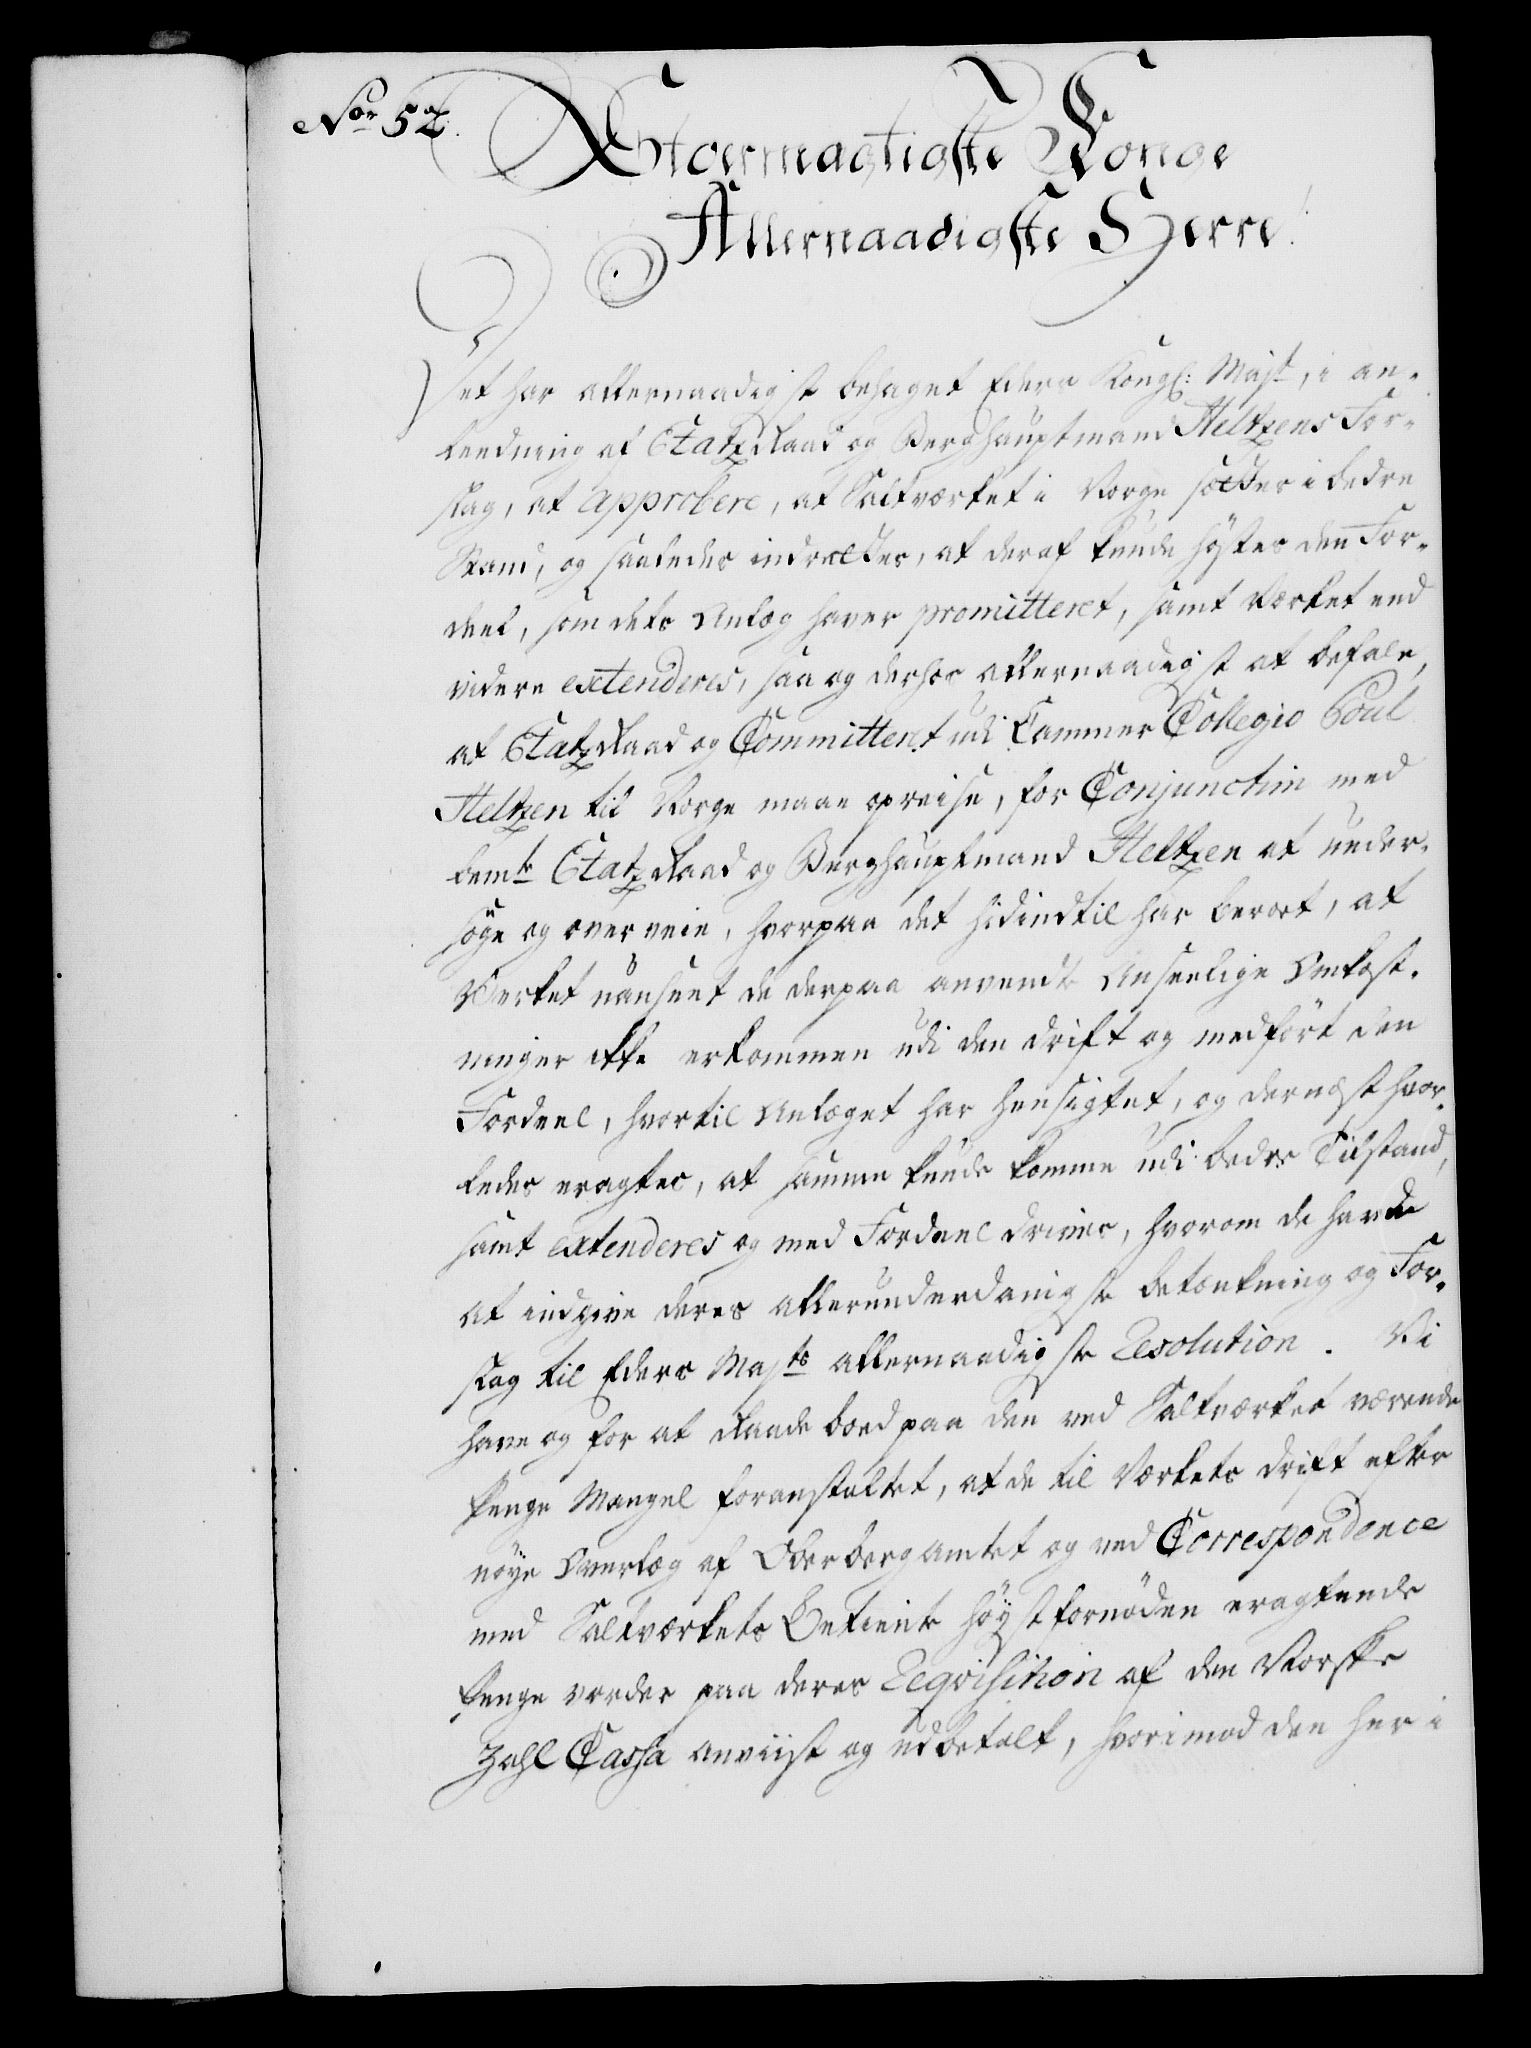 Nor 52.
Stormægtigste Konge
Allernaadigste Herre!
Det har allernaadigst behaget Eders Kongl: Majt, i an-
leedning af Etatz Raad og Berghauptmand Heltzens For-
slag, at approbere, at Saltværket i Norge sættes i bedre
Stand, og saaledes indrættes, at deraf kunde høstes den For-
deel, som dets Anlæg haver promitteret, samt Værket end
videre extenderes, saa og derhos allernaadigst at befale,
at Etatz Raad og Committeret udi Cammer Collegio Poul
Heltzen til Norge maae opreise, for Conjunctim med
bemte Etatz Raad og Berghauptmand Heltzen at under-
søge og overveie, hvorpaa det hidindtil har beroet, at
Verket uanseet de derpaa anvendte Anseelige Omkost-
ninger ikke erkommen udi den drift og medført den
Fordeel, hvortil Anlæget har hensigtet, og dernæst hvor-
ledes eragtes, at samme kunde komme udi bedre Tilstand,
samt extenderes og med Fordeel drives, hvorom de havde
at indgive deres allerunderdanigste betænkning og For-
slag til Eders Majts allernaadigste Resolution. Vi
have og for at Raade bod paa den ved Saltværket værende
Penge Mangel foranstaltet, at de til Værkets drift efter
nøye Overlæg af Oberbergamtet og ved Correspondence
med Saltværkets Betiente høystfornøden eragtende
Penge vorder paa deres Reqvisition af den Norske
Zahl Cassa anviist og udbetalt, hvorimod den her i